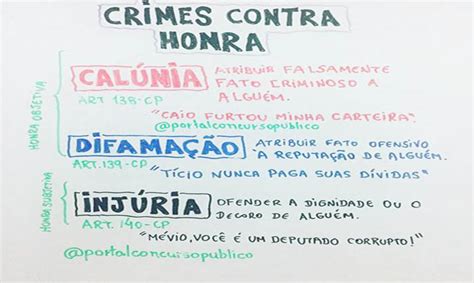 CRIMES CONTRA
HONRA
HONRA OBJETIVA
CALÚNIA
ATRIBUIR FALSAMENTE
FATO CRIMINOSO A
ALGUÉM.
ART 138-CP
"CAIO FURTOU MINHA CARTEIRA".
@portalconcursopublico
DIFAMAÇÃO
ATRIBUIR FATO OFENSIVO
À REPUTAÇÃO DE ALGUÉM.
ART.139-CP
"TÍCIO NUNCA PAGA SUAS DÍVIDAS"
HONRA SUBJETIVA
INJÚRIA
OFENDER A DIGNIDADE OU O
DECORO DE ALGUÉM.
ART. 140-CP
"MÉVIO, VOCÊ É UM DEPUTADO CORRUPTO!"
@portalconcursopublico